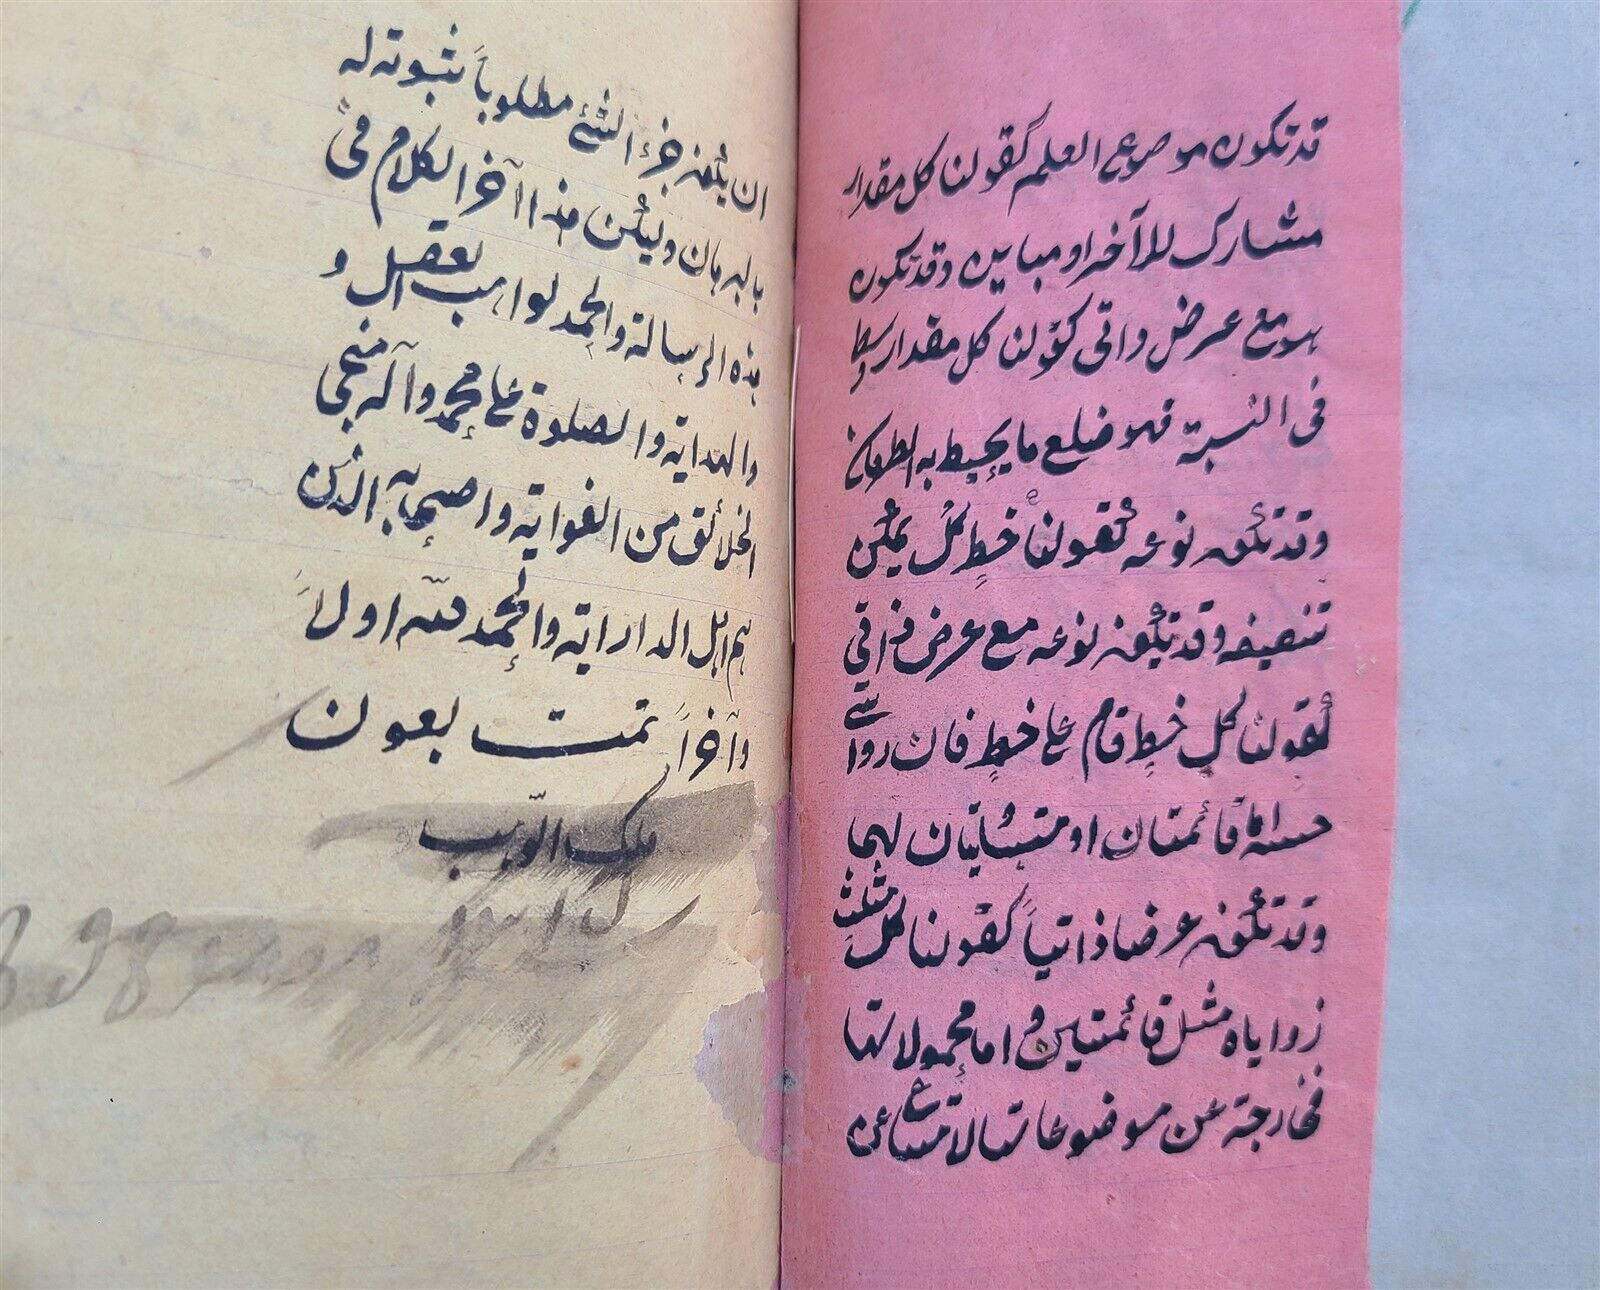 قد تكون موضوع العلم كقولنا كل مقدار
مشارك للآخر او مباين وقد تكون
هو مع عرض ذاتى كقولنا كل مقدار وسط
فى النسبة فهو ضلع ما يحيط به الطرفان
وقد تكون نوعه كقولنا كل خط يمكن
تنصيفه وقد تكون نوعه مع عرض ذاتى
كقولنا كل خط قام على خط فان زوايتى
قائمتان او متساويتان لهما
وقد تكون عرضا ذاتياً كقولنا كل مثلث
زواياه مثل قائمتين و اما محمولاتها
فخارجة عن موضوعاتها لامتناع
ان يكون جزء الشئ مطلوباً ثبوته له
بالبرهان وليكن هذا آخر الكلام فى
هذه الرسالة والحمد لواهب العقل و
والهداية والصلوة على محمد وآله منجى
الخلائق من الغواية واصحابه الذين
هم اهل الداراية والحمد لله اولاً
وآخراً تمت بعون
ملك الوهب